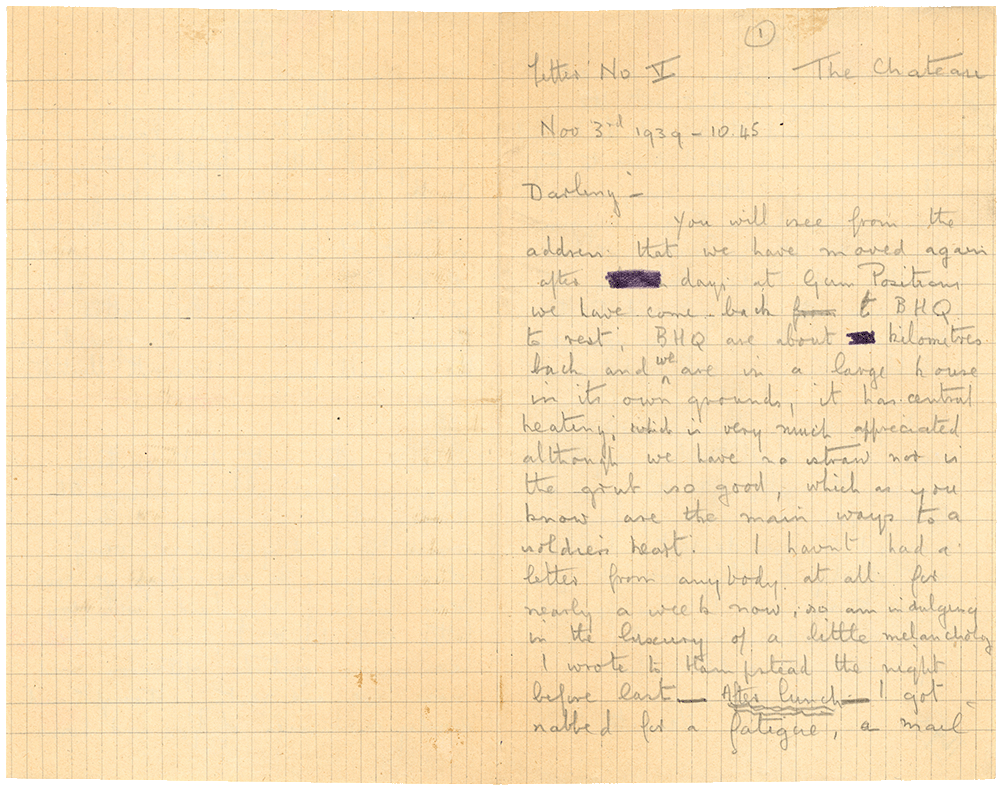 1
Letter No V The Chateau
Nov 3rd 1939 - 10.45
Darling -
You will see from the
address that we have moved again
after days at Gun Positions
we have come back from to BHQ
to rest; BHQ are about kilometres
back and we are in a large house
in its own grounds, it has central
heating, which is very much appreciated
although we have no straw nor is
the grub so good, which as you
know are the main ways to a
soldiers heart. I havn't had a
letter from anybody at all for
nearly a week now, so am indulging
in the luxury of a little melancholy
I wrote to Hampstead the night
before last — After lunch — I got
nabbed for a fatigue, a mail